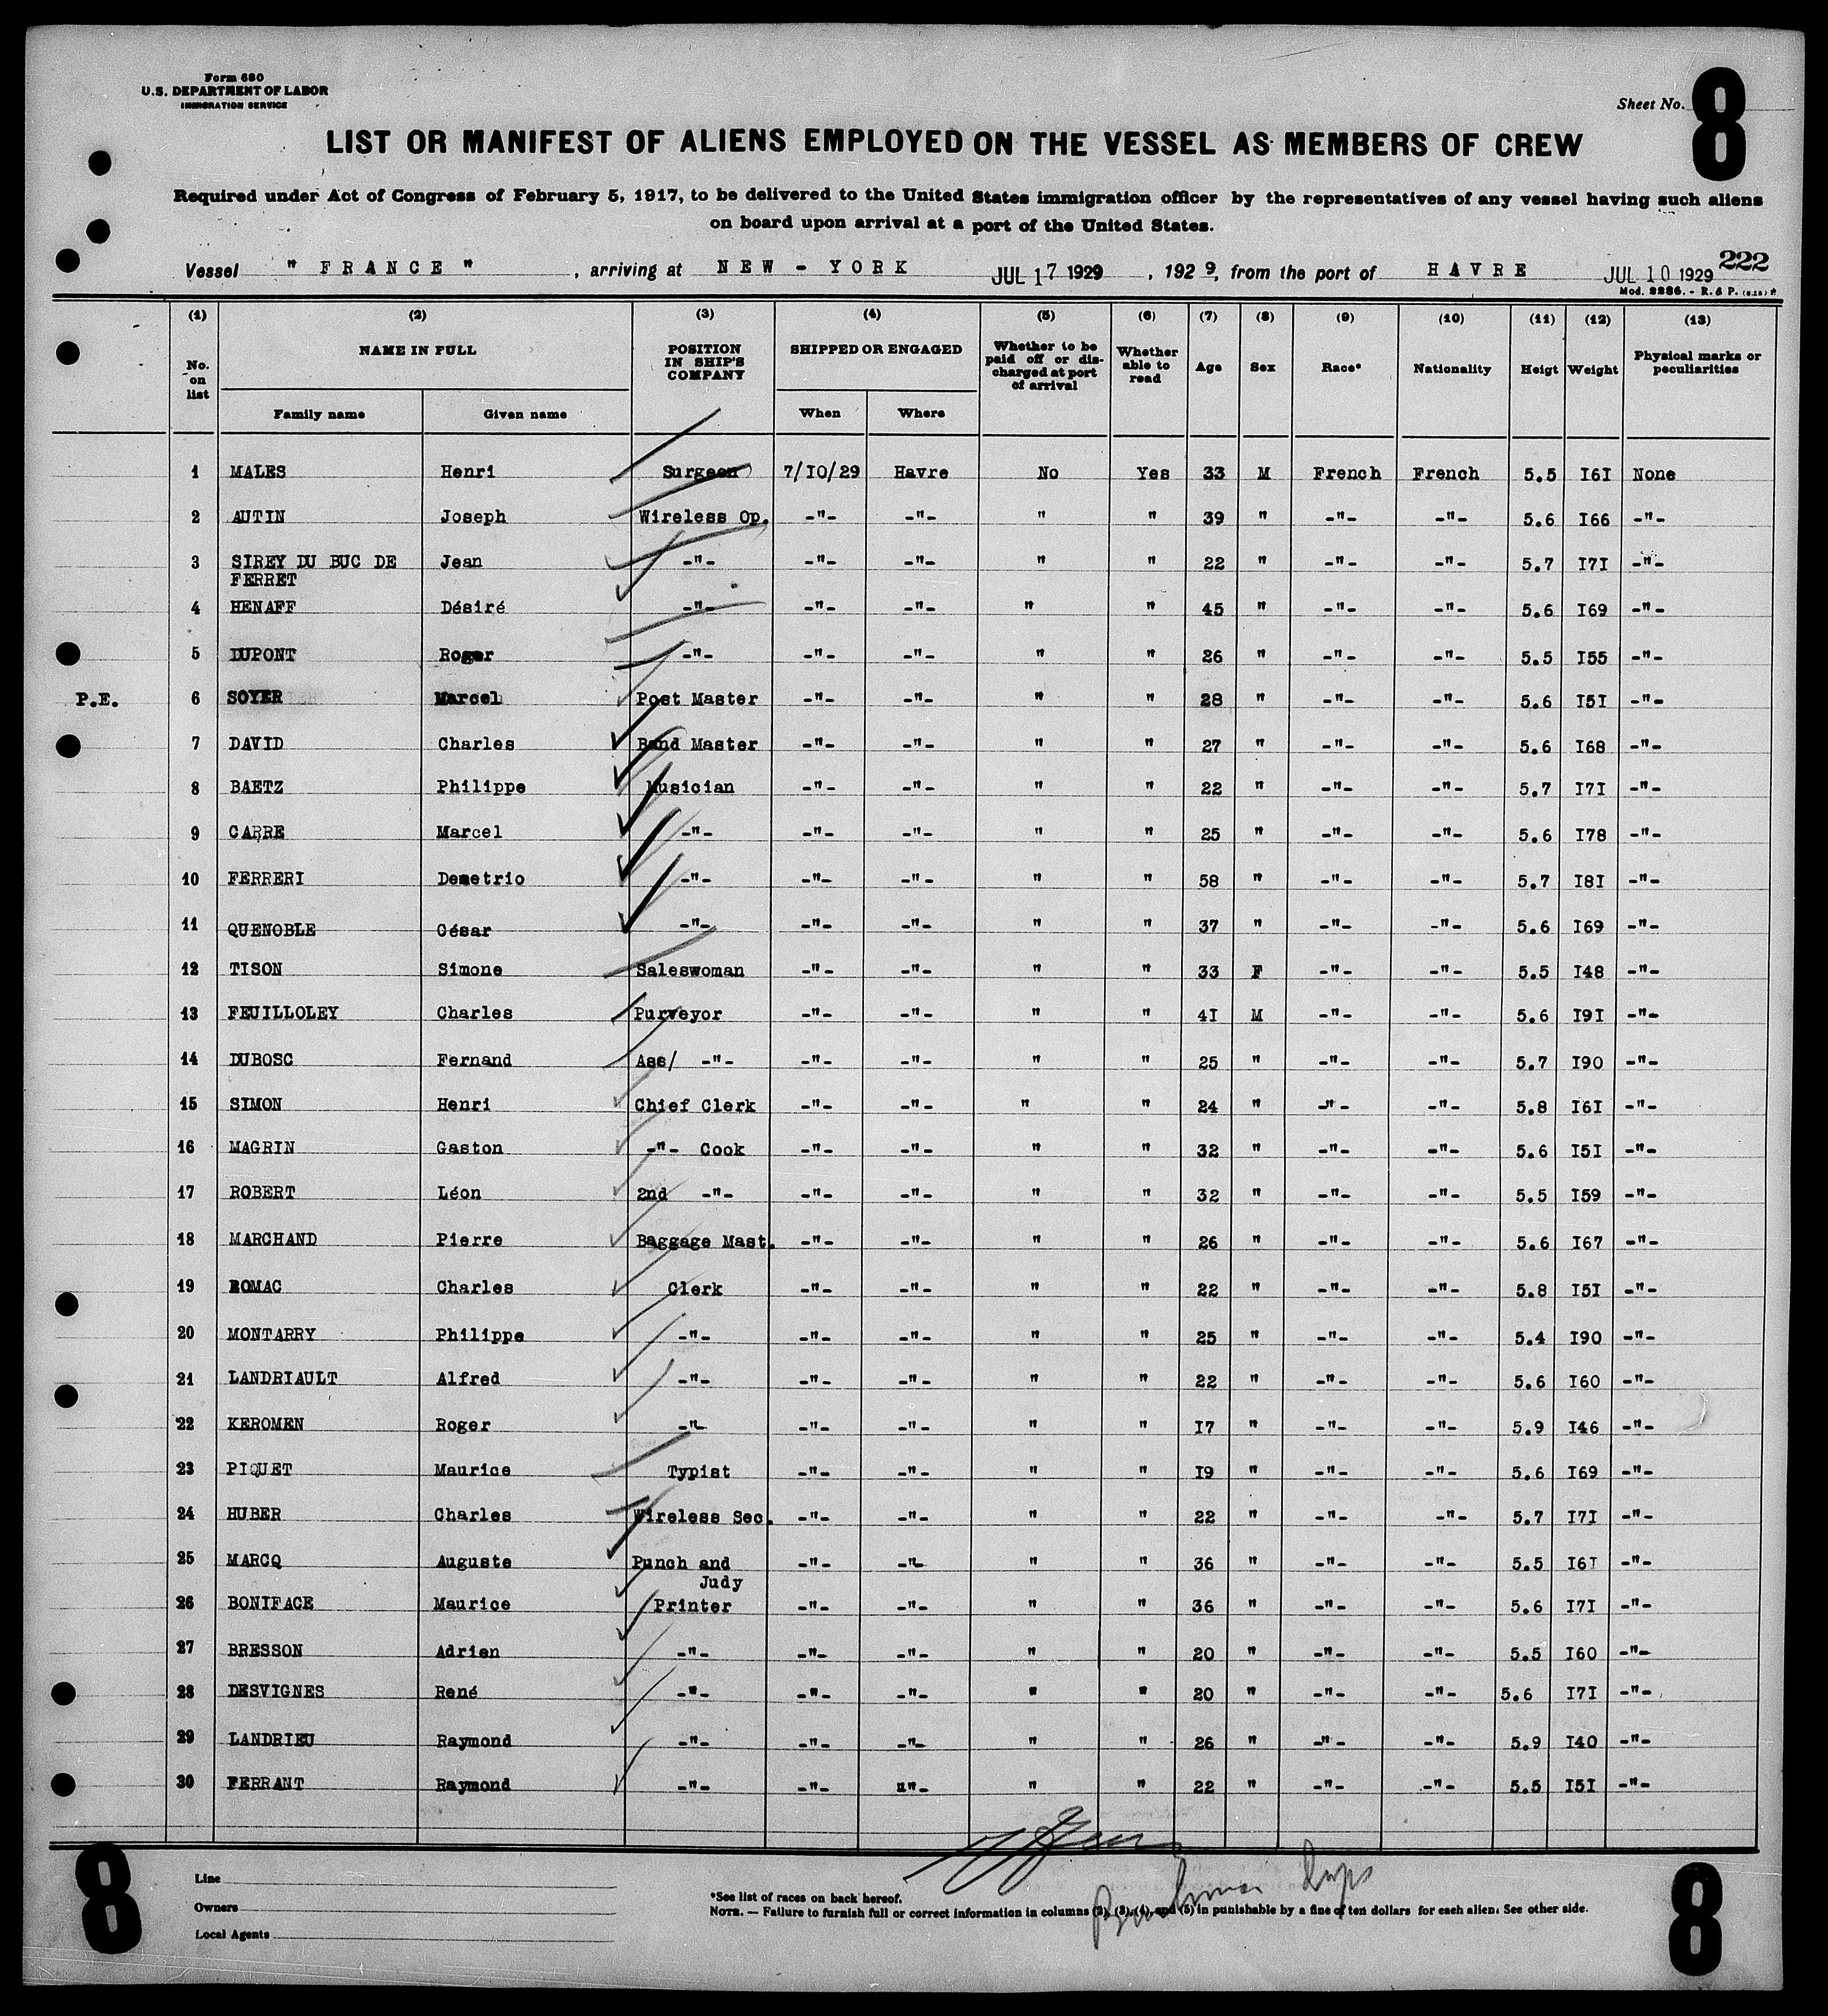 Form 680
U.S. DEPARTMENT OF LABOR
IMMIGRATION SERVICE
Sheet No. 8
LIST OR MANIFEST OF ALIENS EMPLOYED ON THE VESSEL AS MEMBERS OF CREW
Required under Act of Congress of February 5, 1917, to be delivered to the United States immigration officer by the representatives of any vessel having such aliens
on board upon arrival at a port of the United States.
Vessel " FRANCE " , arriving at NEW - YORK JUL 17 1929 , 192 9, from the port of HAVRE JUL 10 1929 222
Mod. 2286. - R. & P.
(1) (2) (3) (4) (5) (6) (7) (8) (9) (10) (11) (12) (13)
No. on list NAME IN FULL POSITION IN SHIP'S COMPANY SHIPPED OR ENGAGED Whether to be paid off or discharged at port of arrival Whether able to read Age Sex Race* Nationality Heigt Weight Physical marks or peculiarities
Family name Given name When Where
1 MALES Henri Surgeon 7/I0/29 Havre No Yes 33 M French French 5.5 I6I None
2 AUTIN Joseph Wireless Op. -"- -"- " " 39 " -"- -"- 5.6 I66 -"-
3 SIREY DU BUC DE Jean -"- -"- -"- " " 22 " -"- -"- 5.7 I7I -"-
FERRET
4 HENAFF Désiré -"- -"- -"- " " 45 " -"- -"- 5.6 I69 -"-
5 DUPONT Roger -"- -"- -"- " " 26 " -"- -"- 5.5 I55 -"-
P.E. 6 SOYER Marcel Post Master -"- -"- " " 28 " -"- -"- 5.6 I5I -"-
7 DAVID Charles Band Master -"- -"- " " 27 " -"- -"- 5.6 I68 -"-
8 BAETZ Philippe Musician -"- -"- " " 22 " -"- -"- 5.7 I7I -"-
9 CARRE Marcel -"- -"- -"- " " 25 " -"- -"- 5.6 I78 -"-
10 FERRERI Demetrio -"- -"- -"- " " 58 " -"- -"- 5.7 I8I -"-
11 QUENOBLE César -"- -"- -"- " " 37 " -"- -"- 5.6 I69 -"-
12 TISON Simone Saleswoman -"- -"- " " 33 F -"- -"- 5.5 I48 -"-
13 FEUILLOLEY Charles Purveyor -"- -"- " " 4I M -"- -"- 5.6 I9I -"-
14 DUBOSC Fernand Ass/ -"- -"- -"- " " 25 " -"- -"- 5.7 I90 -"-
15 SIMON Henri Chief Clerk -"- -"- " " 24 " -"- -"- 5.8 I6I -"-
16 MAGRIN Gaston -"- Cook -"- -"- " " 32 " -"- -"- 5.6 I5I -"-
17 ROBERT Léon 2nd -"- -"- -"- " " 32 " -"- -"- 5.5 I59 -"-
18 MARCHAND Pierre Baggage Mast. -"- -"- " " 26 " -"- -"- 5.6 I67 -"-
19 ROMAC Charles Clerk -"- -"- " " 22 " -"- -"- 5.8 I5I -"-
20 MONTARRY Philippe -"- -"- -"- " " 25 " -"- -"- 5.4 I90 -"-
21 LANDRIAULT Alfred -"- -"- -"- " " 22 " -"- -"- 5.6 I60 -"-
22 KEROMEN Roger -"- -"- -"- " " I7 " -"- -"- 5.9 I46 -"-
23 PIQUET Maurice Typist -"- -"- " " I9 " -"- -"- 5.6 I69 -"-
24 HUBER Charles Wireless Sec. -"- -"- " " 22 " -"- -"- 5.7 I7I -"-
25 MARCQ Auguste Punch and -"- -"- " " 36 " -"- -"- 5.5 I6I -"-
Judy
26 BONIFACE Maurice Printer -"- -"- " " 36 " -"- -"- 5.6 I7I -"-
27 BRESSON Adrien -"- -"- -"- " " 20 " -"- -"- 5.5 I60 -"-
28 DESVIGNES René -"- -"- -"- " " 20 " -"- -"- 5.6 I7I -"-
29 LANDRIEU Raymond -"- -"- -"- " " 26 " -"- -"- 5.9 I40 -"-
30 FERRANT Raymond -"- -"- -"- " " 22 " -"- -"- 5.5 I5I -"-
8 8
Line
Owners
Local Agents
*See list of races on back hereof.
NOTE. — Failure to furnish full or correct information in columns (2), (3), (4), and (5) in punishable by a fine of ten dollars for each alien. See other side.